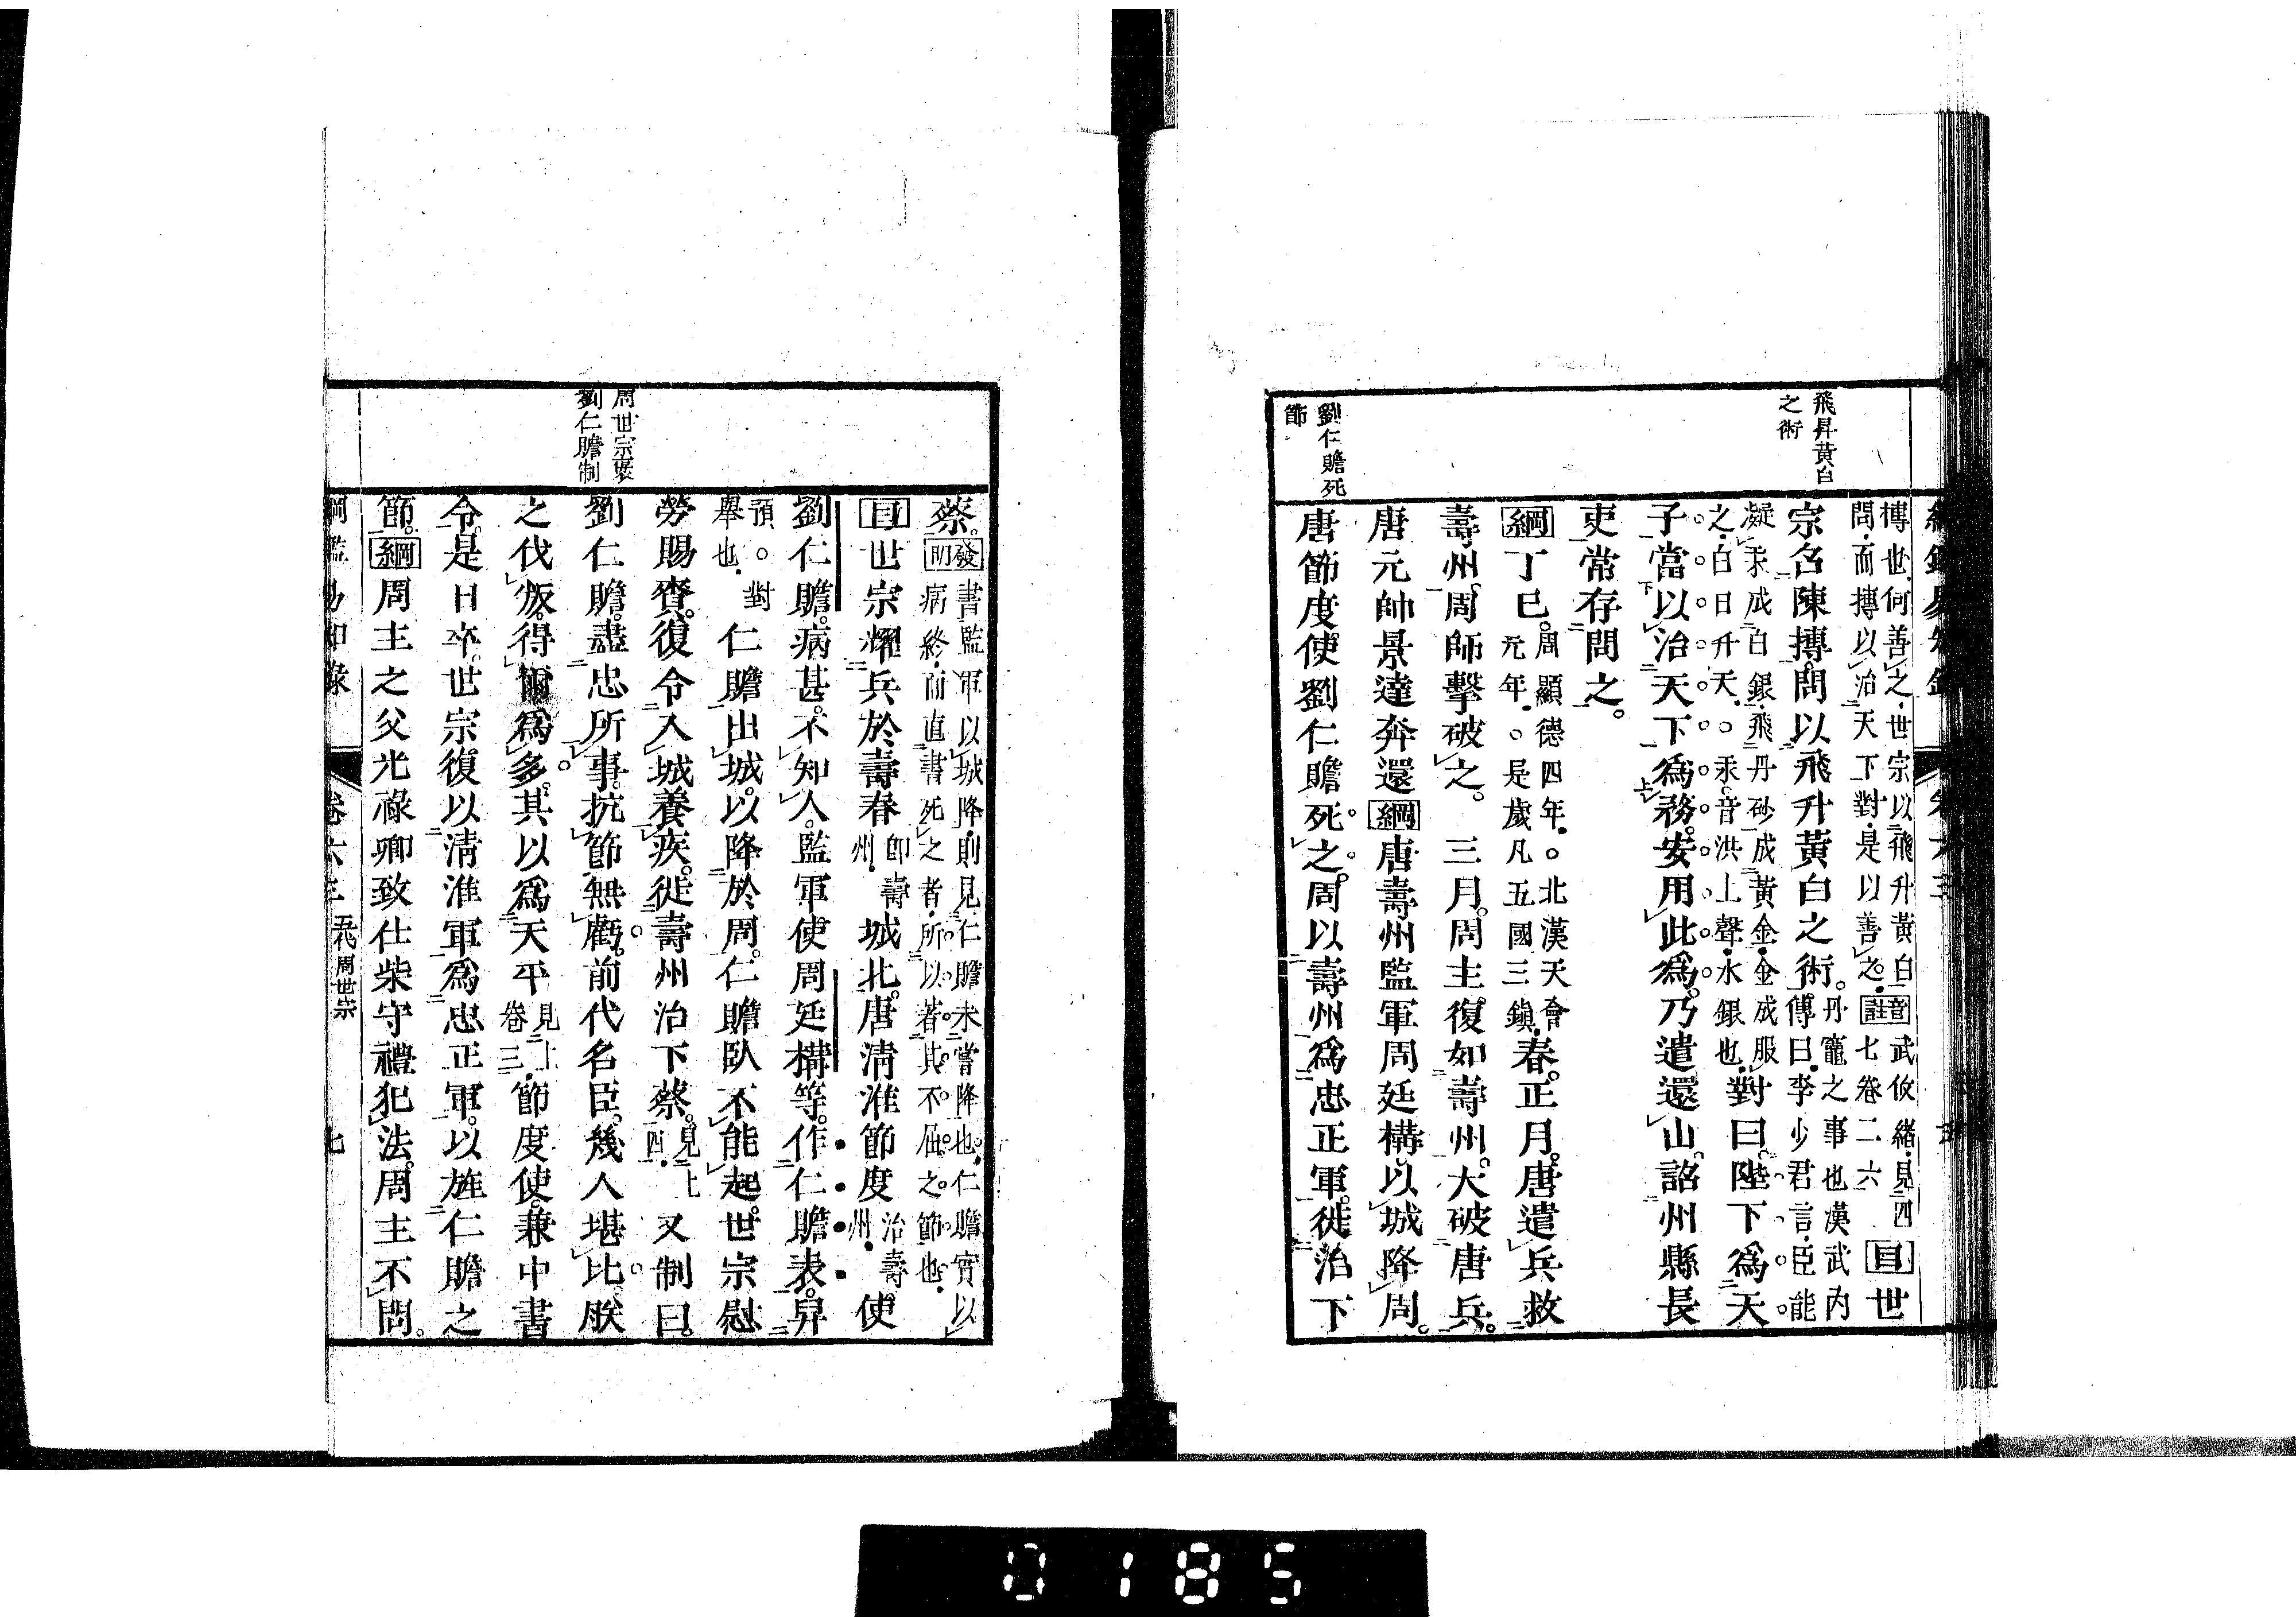 飛昇黃白
之術
劉仁贍死
節
摶也何善之世宗以飛升黃白
問而摶以治天下對是以善之
音註
武攸緒見四
七卷二六
目世
宗召陳摶問以飛升黃白之術
丹竈之事也漢武內
傳曰李少君言臣能
凝汞成白銀飛丹砂成黃金金成服
之白日升天○汞音洪上聲水銀也
對曰陛下為天
子當以治天下為務安用此為乃遣還山詔州縣長
吏常存問之
綱丁巳
周顯德四年○北漢天會
元年○是歲凡五國三鎮
春正月唐遣兵救
壽州周師擊破之三月周主復如壽州大破唐兵
唐元帥景達奔還綱唐壽州監軍周廷構以城降周
唐節度使劉仁贍死之周以壽州為忠正軍徙治下
周世宗褒
劉仁贍制
蔡
發明
書監軍以城降則見仁贍未嘗降也仁贍實以
病終而直書死之者所以著其不屈之節也
目世宗耀兵於壽春
即壽
州
城北唐清淮節度
治壽
州
使
劉仁贍病甚不知人監軍使周廷構等作仁贍表舁
預○對
舉也
仁贍出城以降於周仁贍臥不能起世宗慰
勞賜賚復令入城養疾徙壽州治下蔡
見上
四
又制曰
劉仁贍盡忠所事抗節無虧前代名臣幾人堪比朕
之伐叛得爾為多其以為天平
見上
卷三
節度使兼中書
令是日卒世宗復以清淮軍為忠正軍以旌仁贍之
節綱周主之父光祿卿致仕柴守禮犯法周主不問
綱鑑易知錄 卷六三 五代周世宗 七
0185